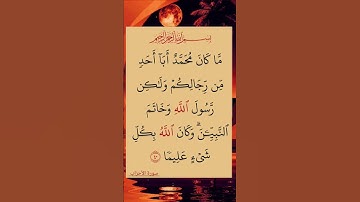 بسم الله الرحمن الرحيم
مَّا كَانَ مُحَمَّدٌ أَبَآ أَحَدٍ
مِّن رِّجَالِكُمْ وَلَٰكِن
رَّسُولَ ٱللَّهِ وَخَاتَمَ
ٱلنَّبِيِّـۧنَ ۗ وَكَانَ ٱللَّهُ بِكُلِّ
شَىْءٍ عَلِيمًا
سورة الأحزاب